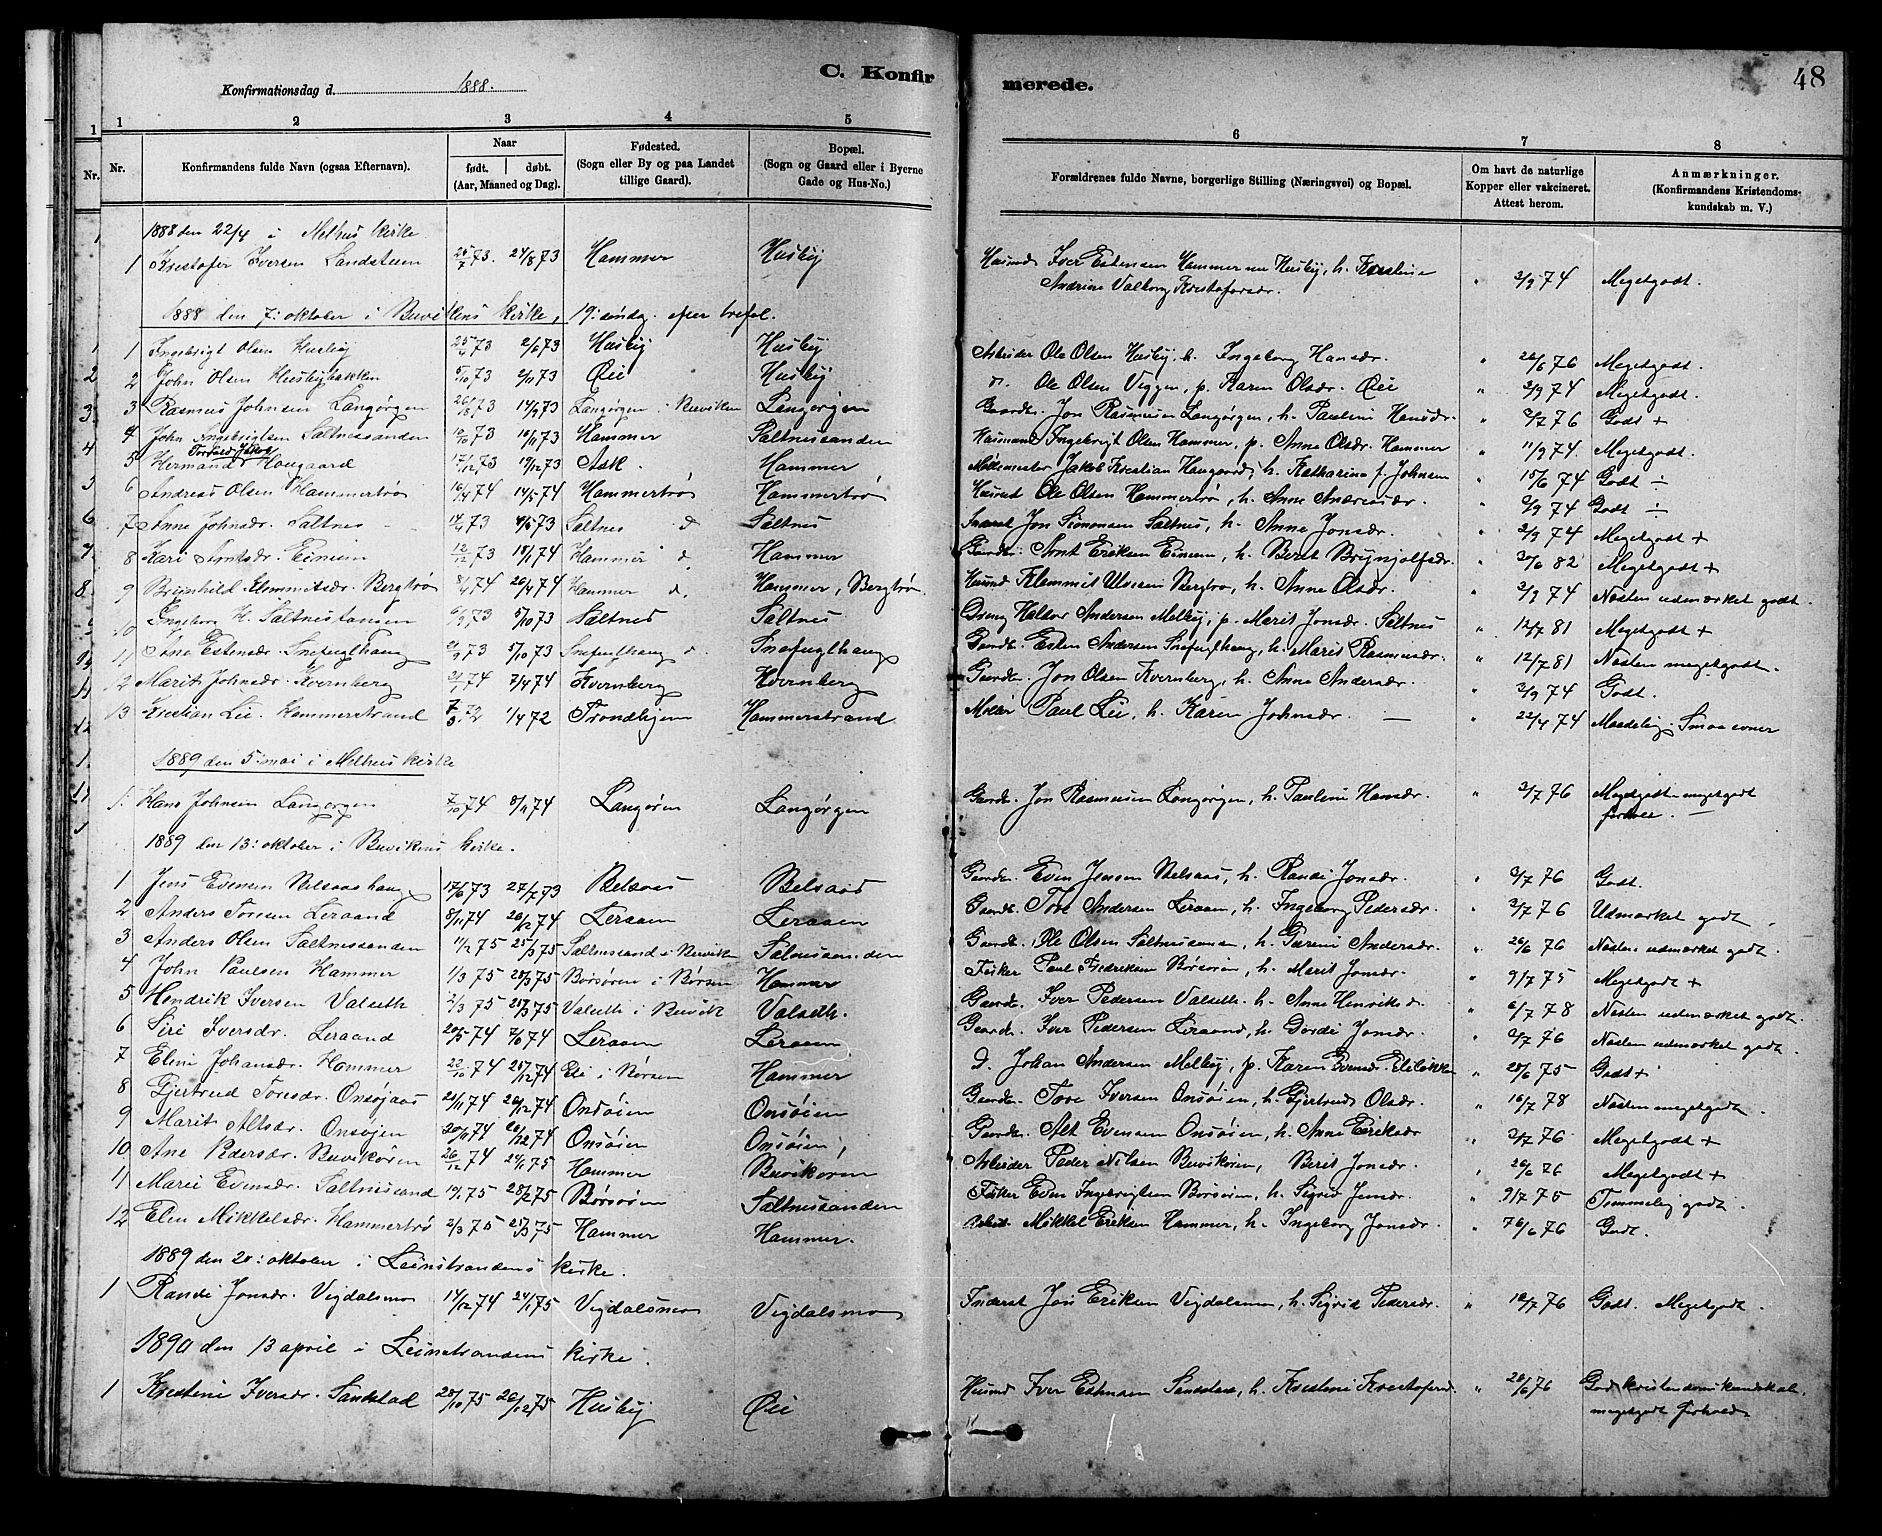 C. Konfirmerede.
48
Konfirmationsdag d. 1888.
1 1 2 3 4 5 6 7 8
Nr. Nr. Konfirmandens fulde Navn (ogsaa Efternavn). Naar født. døbt. (Aar, Maaned og Dag). Fødested. (Sogn eller By og paa Landet tillige Gaard). Bopæl. (Sogn og Gaard eller i Byerne Gade og Hus-No.) Forældrenes fulde Navne, borgerlige Stilling (Næringsvei) og Bopæl. Om havt de naturlige Kopper eller vakcineret. Attest herom. Anmærkninger. (Konfirmandens Kristendomskundskab m. V.)
1888 den 22/4 i Melhus kirke
1 Kristofer Iversen Sandsteen 25/7 73. 24/8 73 Hammer Husby Husmd Iver Estensen Hammer Husby, h. Kristine Andrine Valborg Kristofersdr. " 2/9 74 Megetgodt.
1888 den 7: oktober i Buvikens kirke, 19: søndag efter trefol.
1 Ingebrigt Olsen Husby 25/4 73 2/6 73 Husby Husby Arbeider Ole Olsen Husby, h. Ingeborg Hansdr. " 26/6 76 Megetgodt.
2 John Olsen Husbybakken 5/10 73 2/11 73 Øie Husby Ole Olsen Viggen, p. Karen Olsdr. Øie " 2/9 74 Megetgodt.
3 Rasmus Johnsen Langørgen 26/8 73 14/9 73 Langørgen i Buviken Langørgen Gaardr. Jon Rasmusen Langørgen, h. Pauline Hansdr. " 3/7 76 Godt +
4 John Ingebrigtsen Saltnessanden 12/10 73 16/11 73 Hammer Saltnessanden Husmand Ingebrigt Olsen Hammer, p. Anne Olsdr. Hammer " 11/9 74 Megetgodt.
5 Hermand Tortved Jakob Haugaard 17/12 73 19/12 73 Ask. Hammer Jakob Kristian Haugaard, h. Katharina f. Johnsen " 15/6 74 Godt ÷
6 Andreas Olsen Hammertrø 16/4 74 14/5 74 Hammertrø Hammertrø Husmd Ole Olsen Hammertrø, h. Anne Andreasdr. " 2/9 74 Godt ÷
7 Anne Johnsdr. Saltnes 14/4 73 4/5 73 Saltnes d Saltnes Jon Simonsen Saltnes, h. Anne Jonsdr. " 2/9 74 Megetgodt +
8 Kari Arntsdr. Eimem 12/12 73 18/1 74 Hammer d. Hammer Gaardr. Arnt Eriksen Eimem, h. Berit Brynjolfsdr. " 30/6 82 Megetgodt +
9 Brynhild Klemmitsdr. Bergtrø 8/4 74 26/4 74 Hammer d. Hammer, Bergtrø. Husmd Klemmit Bergtrø, h. Anne Olsdr. " 2/9 74 Næsten udmærket godt.
10 Ingeborg H. Saltnestangen 6/9 73 5/10 73 Saltnes Saltnes Haldor Andersen Melby, p. Marit Jonsdr. Saltnes " 12/7 81 Megetgodt +
11 Ane Estensdr. Snefuglhaug 21/9 73 5/10 73 Snefuglhaug d. Snefuglhaug Gaardr. Esten Andersen Snefuglhaug, h. Marit Rasmusdr. " 12/7 81 Næsten megetgodt.
12 Marit Johnsdr. Kvernberg 21/1 74 7/4 74 Kvernberg Kvernberg Gaardr. Jon Olsen Kvernberg, h. Anne Andersdr. " 2/9 74 Godt.
13 Kristian Lie. Hammerstrand 7/3 72 1/4 72 Trondhjem Hammerstrand Paul Lie, h. Karen Johnsdr. — " 22/4 74 Maadelig. Smaa evner
1889 den 5: mai i Melhus kirke
1. Hans Johnsen Langørgen 7/10 74 8/11 74 Langøren Langørgen Gaardr. Jon Rasmusen Langørgen, h. Pauline Hansdr. " 3/7 76 Megetgodt megetgodt forhold. —
1889 den 13: oktober i Buvikens kirke.
1 Jens Evensen Belsaashaug 17/6 73 27/7 73 Belsaas Belsaas Gaardr. Even Jensen Belsaas, h. Randi Jonsdr. " 3/7 76 Godt.
2 Anders Toresen Leraand 8/11 74 26/12 74 Leraaen Leraaen Gaardr. Tore Andersen Leraaen, h. Ingeborg Pedersdr. " 3/7 76 Udmærket godt.
3 Anders Olsen Saltnessanden 11/2 75 25/3 75 Saltnessand i Buviken Salnessanden Gaardr. Ole Olsen Saltnessanden, h. Andersdr. " 26/6 76 Næsten udmærket godt.
4 John Paulsen Hammer 1/3 75 28/3 75 Børsøren i Børsen Hammer Fisker Paul Fredriksen Børsøren, h. Marit Jonsdr. " 9/7 75 Megetgodt +
5 Hendrik Iversen Valseth 2/3 75 28/3 75 Valseth i Buvik Valseth. Gaardr. Iver Pedersen Valseth. h. Anne Henriksd. " 6/7 78 Næsten udmærket godt.
6 Siri Iversdr. Leraand 20/5 74 7/6 74 Leraaen Leraaen Gaardr. Iver Pedersen Leraand, h. Dordi Jonsdr. " 3/7 76 Næsten udmærket godt.
7 Elen Johansdr. Hammer 22/10 74 25/12 74 Eli i Børsen Hammer d. Johan Andersen Melby, p. Karen Evensdr. Elibakken " 28/6 75 Godt +
8 Gjertrud Toresdr. Onsøjaas 21/11 74 26/12 74 Onsøien Onsøien Gaardr. Tore Iversen Onsøien, h. Gjertrud Olsdr. " 16/7 78 Næsten megetgodt.
9 Marit Altsdr. Onsøjen 20/11 74 26/12 74 Onsøien Onsøien Gaardr. Alt Evensen Onsøien, h. Anne Eriksdr " 3/7 76 Megetgodt +
10 Ane Pedersdr. Buvikøren 26/12 74 24/1 75 Hammer Buvikøren Arbeider Peder Nilsen Buvikøren, Berit Jonsdr. " 26/6 76 Megetgodt +
11 Marie Evensdr. Saltnessand 19/1 75 28/2 75 Børsøren Saltnessanden Fisker Even Ingebrigtsen Børsøren, h. Sigrid Jensdr. " 9/7 75 Temmelig godt.
12 Elen Mikkelsdr. Hammertrø 2/3 75 25/3 75 Hammer Hammer. Mikkel Eriksen Hammer, h. Ingeborg Jonsdr. " 26/6 76 Godt.
1889 den 20: oktober i Leinstrandens kirke.
1 Randi Jonsdr. Vigdalsmo 14/12 74 24/1 75 Vigdalsmo Vigdalsmo Inderst Jon Eriksen Vigdalsmo, h. Sigrid Pedersdr. " 12/7 76 Godt. Megetgodt.
1890 den 13 april i Leinstrandens kirke.
1 Kristine Iversdr. Sandstad 28/10 75 26/12 75 Husby Øie Husmd Iver Estensen h. Kristine Kristofersd. " 26/6 76 God kristendomskundskab, megetgodt forhold